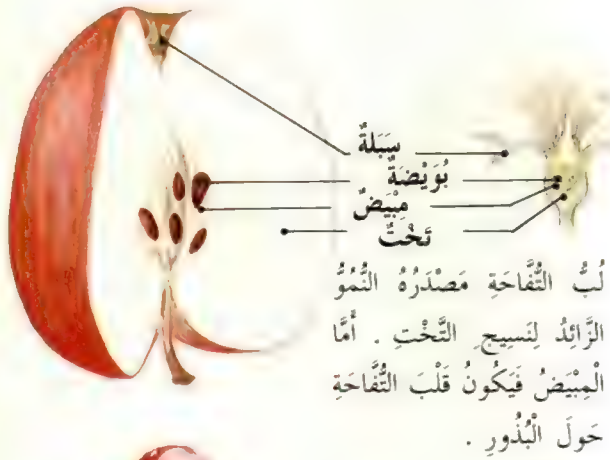 سَبَلةٌ
بُوَيْضَةٌ
مِبْيَضٌ
تَخْتٌ
لُبُّ التُّفَّاحَةِ مَصْدَرُهُ النُّمُوُّ
الزَّائِدُ لِنَسِيجِ التَّخْتِ . أَمَّا
الْمِبْيَضُ فَيَكُونُ قَلْبَ التُّفَّاحَةِ
حَولَ الْبُذُورِ .